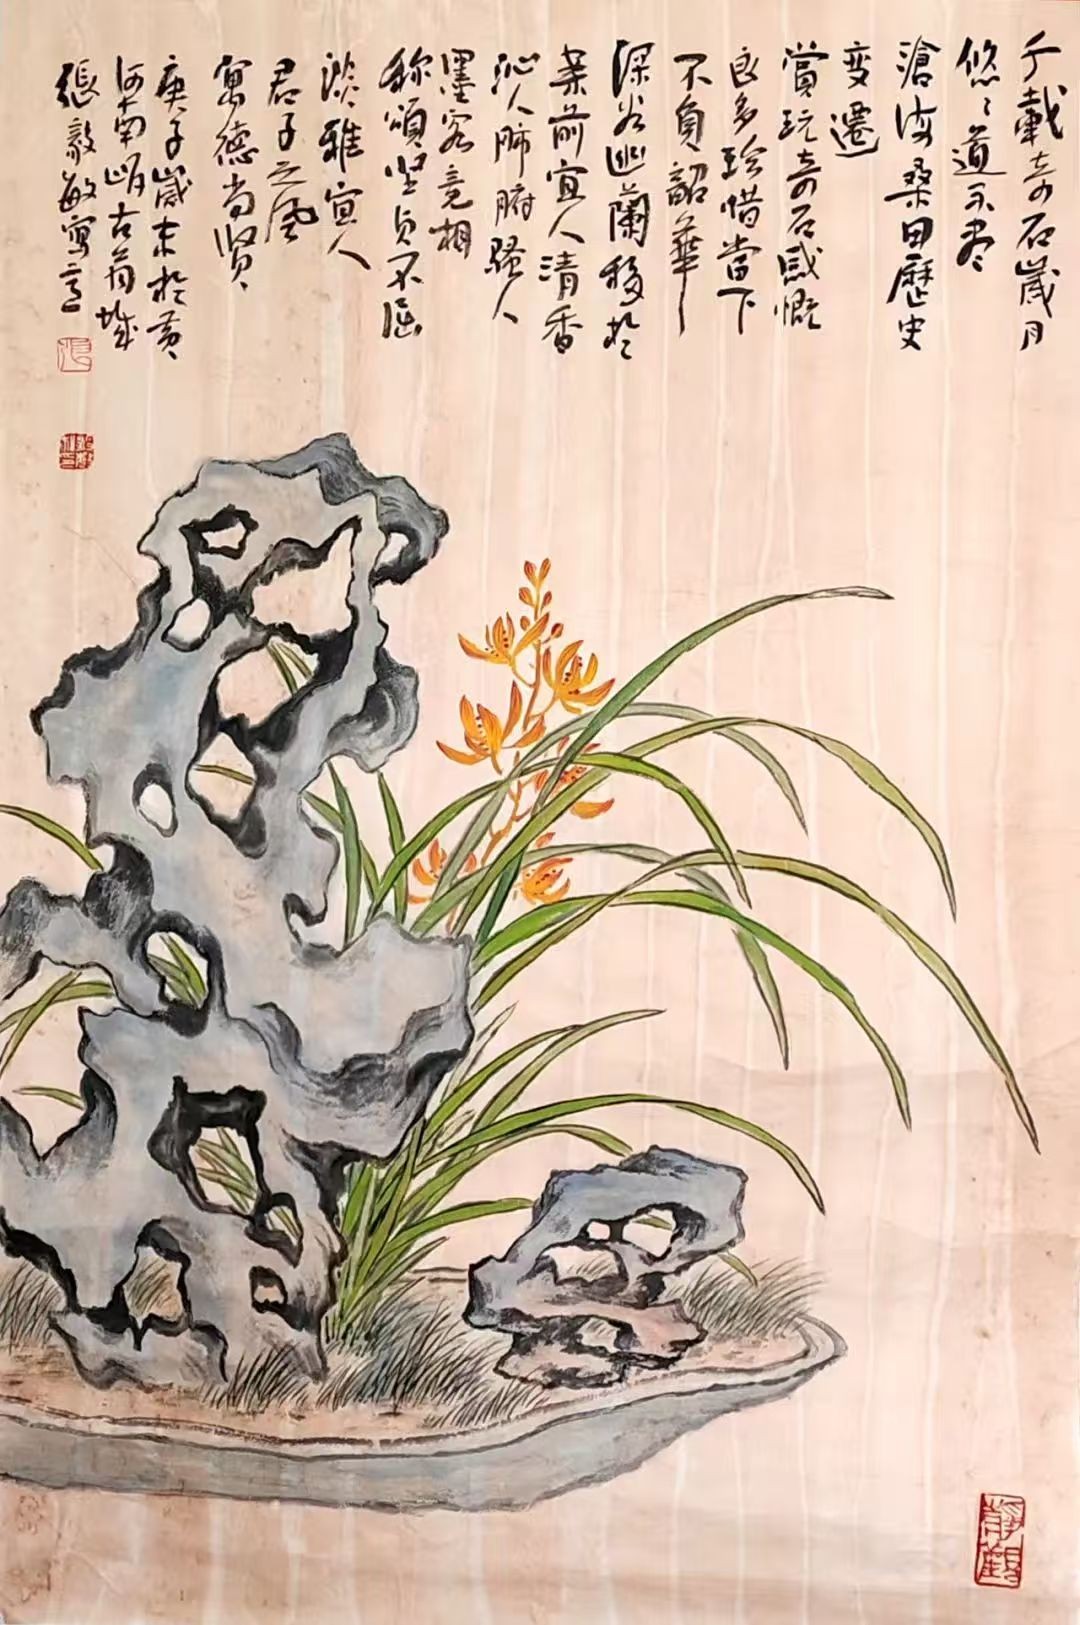 千載奇石歲月
悠悠道不盡
滄海桑田歷史
變遷
賞玩奇石感慨
良多珍惜當下
不負韶華
深谷幽蘭移於
案前宜人清香
沁人肺腑騷人
墨客竞相
称頌坚贞不屈
淡雅宜人
君子之風
寓德尚贤
庚子歲末於黄
河南岸古
張毅敏寫意
靜觀